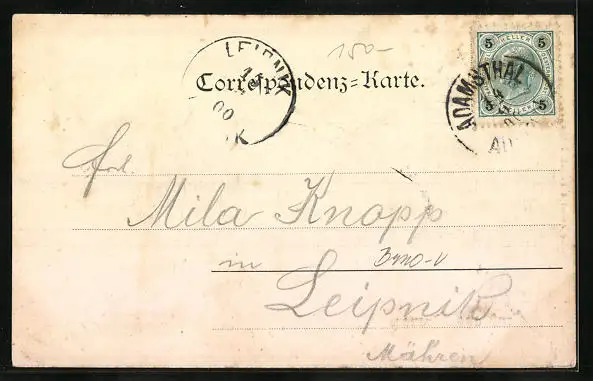 LEIPNIK
150-
5 HELLER 5
ADAMSTHAL
Correspondenz=Karte.
00
K
5 HELLER 5
Frl.
Mila Knopp
in
Brno-V
Leipnik
Mähren